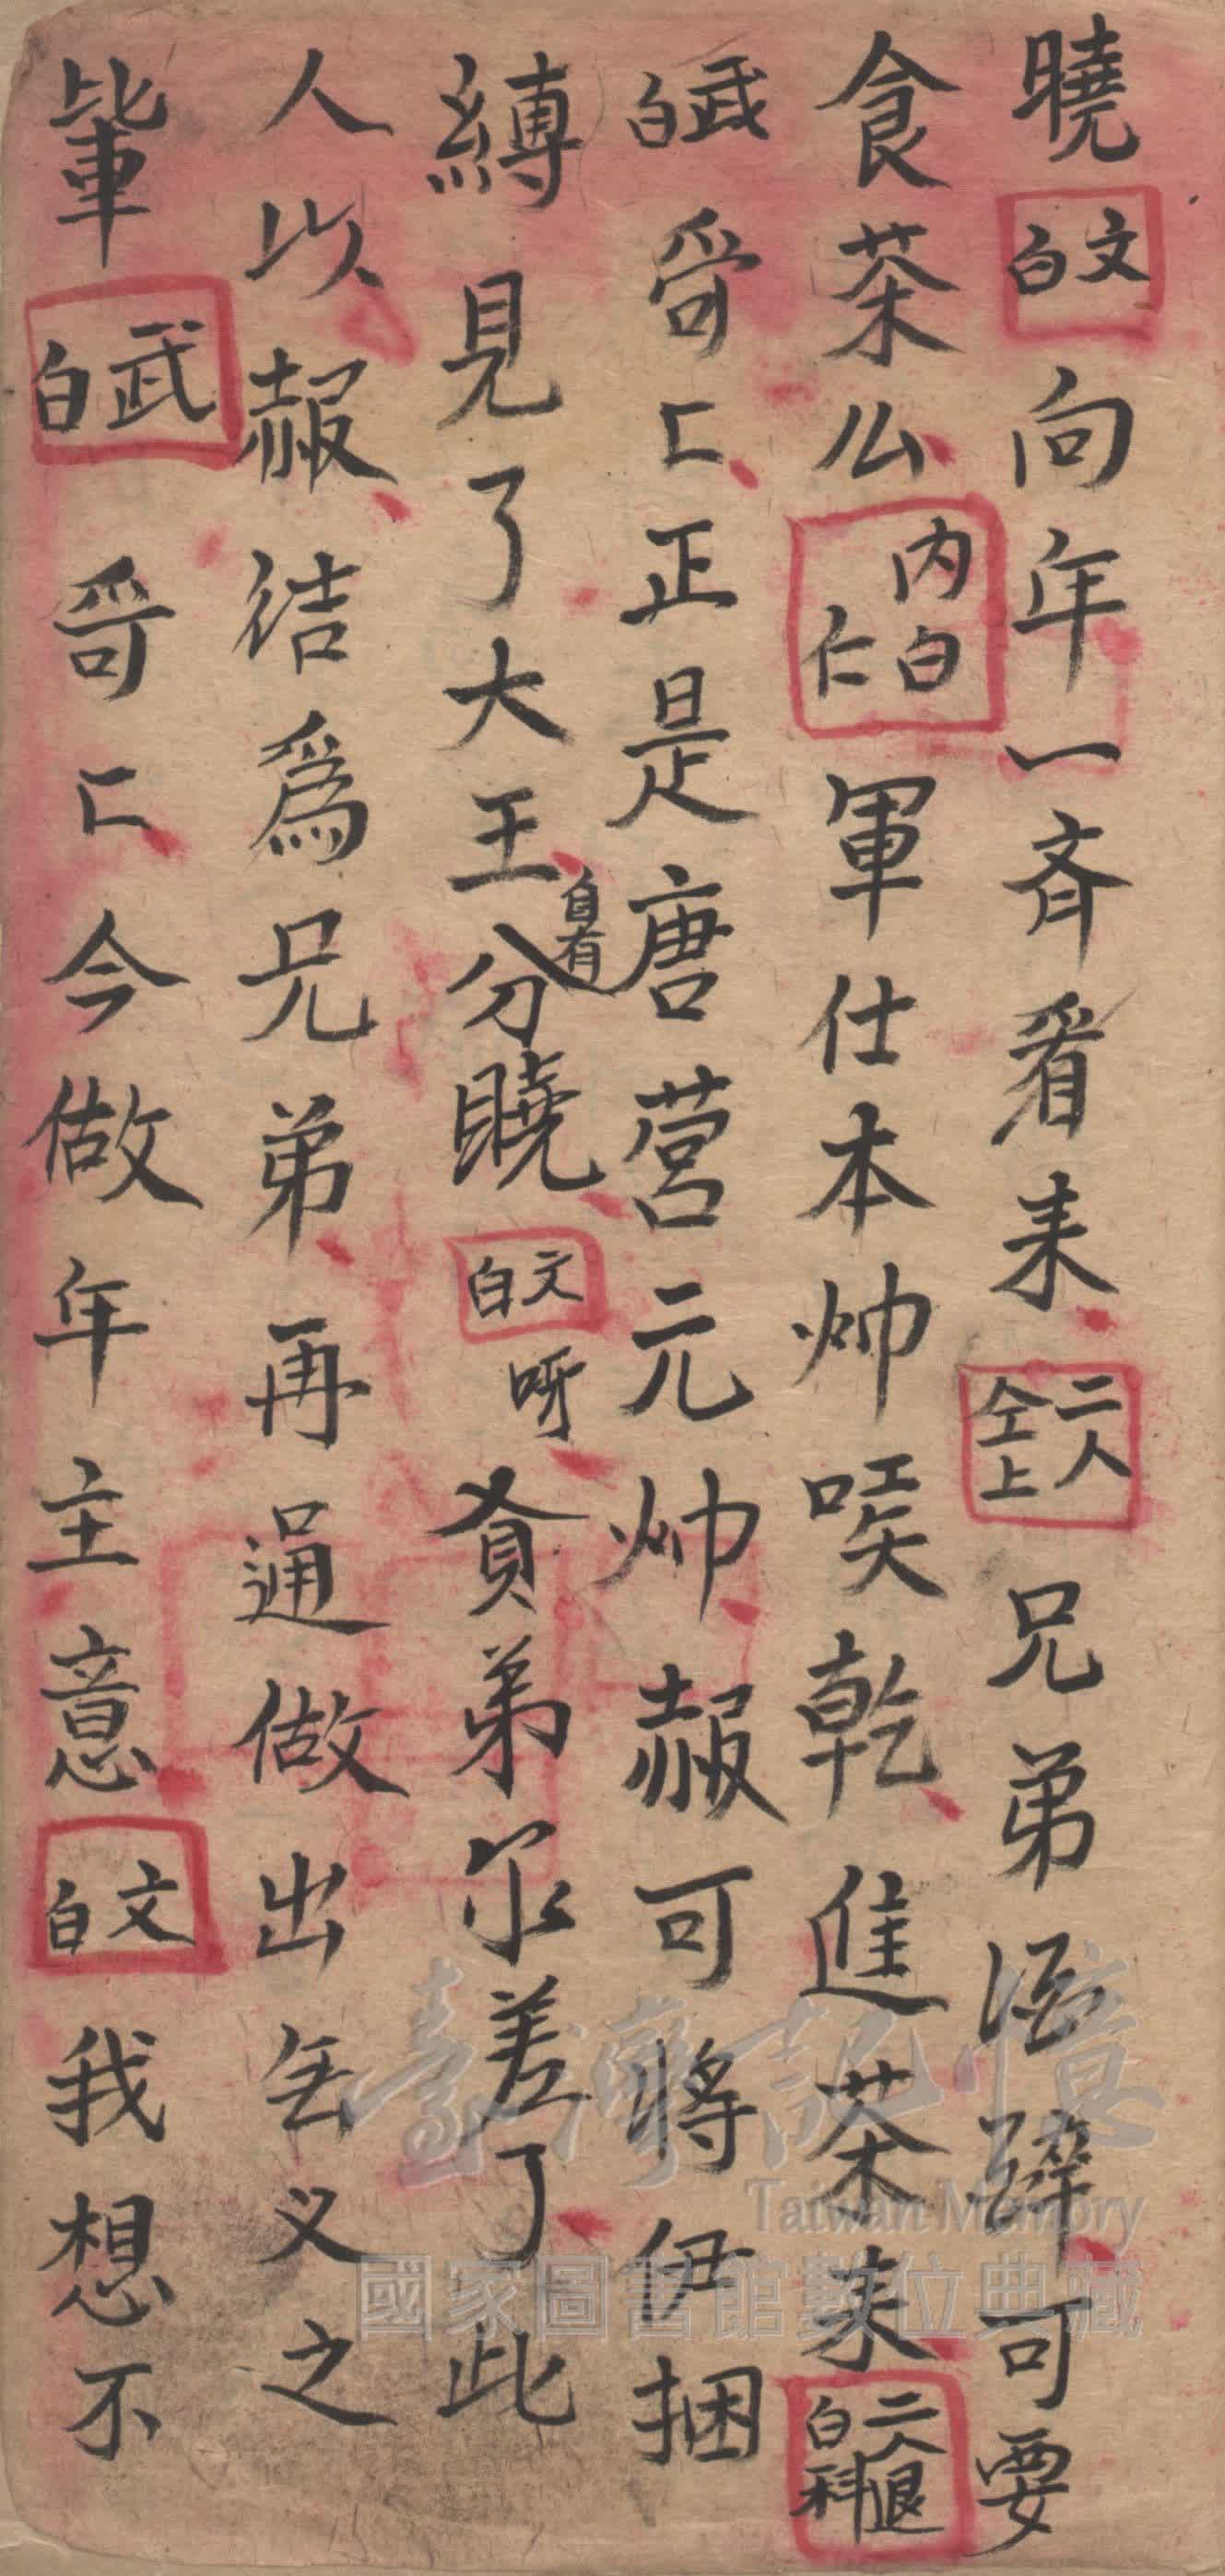 曉文白向年一齐看耒二人仝上兄弟酒辞可要
食茶么内白仁軍仕本帅唉乾進茶耒二人退白科
武白哥〻正是唐营元帅赧可將伊捆
縛見了大王自有分曉文白呀賢弟尔差了此
人以赧结爲兄弟再通做出无义之
輩武白哥〻今做年主意文白我想不
臺灣記憶
Taiwan Memory
國家圖書館數位典藏